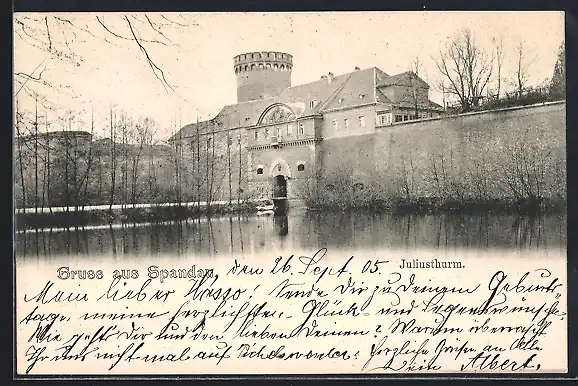 Gruss aus Spandau, den 26. Sept. 05. Juliusthurm.
Mein lieber Sende Dir zu Deinem Geburts-
tage meine herzlichsten Glück- und Segenswünsche.
Wie geht's Dir und den lieben Deinen? Warum überrascht
Ihr uns nicht mal auf Herzliche Grüße an Alle
Dein Albert.